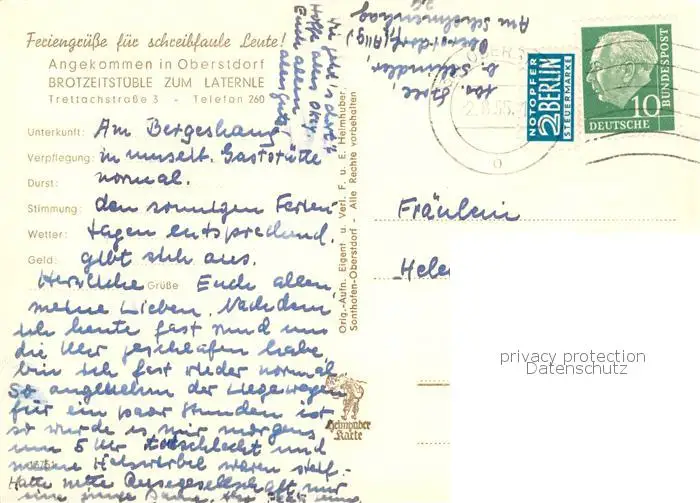 Feriengrüße für schreibfaule Leute!
Angekommen in Oberstdorf
BROTZEITSTÜBLE ZUM LATERNLE
Trettachstraße 3 - Telefon 260
Unterkunft: Am Bergeshang
Verpflegung: in unweit. Gaststätte
Durst: normal.
Stimmung: den sonnigen Ferien-
Wetter: tagen entsprechend.
Geld: geht sich aus.
Herzliche Grüße Euch allen,
meine Lieben. Nachdem
ich heute fast rund um
die Uhr geschlafen habe,
bin ich fast wieder normal.
So angenehm der Liegewagen
für ein paar Stunden ist
so wurde es mir morgens
um 5 Uhr schlecht und
meine Halswirbel waren steif.
Hatte nette Reisegesellschaft nur
eine junge Dame,
Wie geht's dort?
Hoffe alles okay.
Euch allen
alles gute!
Orig.-Aufn. Eigent. u. Verl. F. u. E. Heimhuber,
Sonthofen-Oberstdorf - Alle Rechte vorbehalten
Heimhuber
Karte
Oberstdorf (Allg)
Am
NOTOPFER
2 BERLIN
STEUERMARKE
DEUTSCHE
BUNDESPOST
10
Fräulein
Hele
privacy protection
Datenschutz